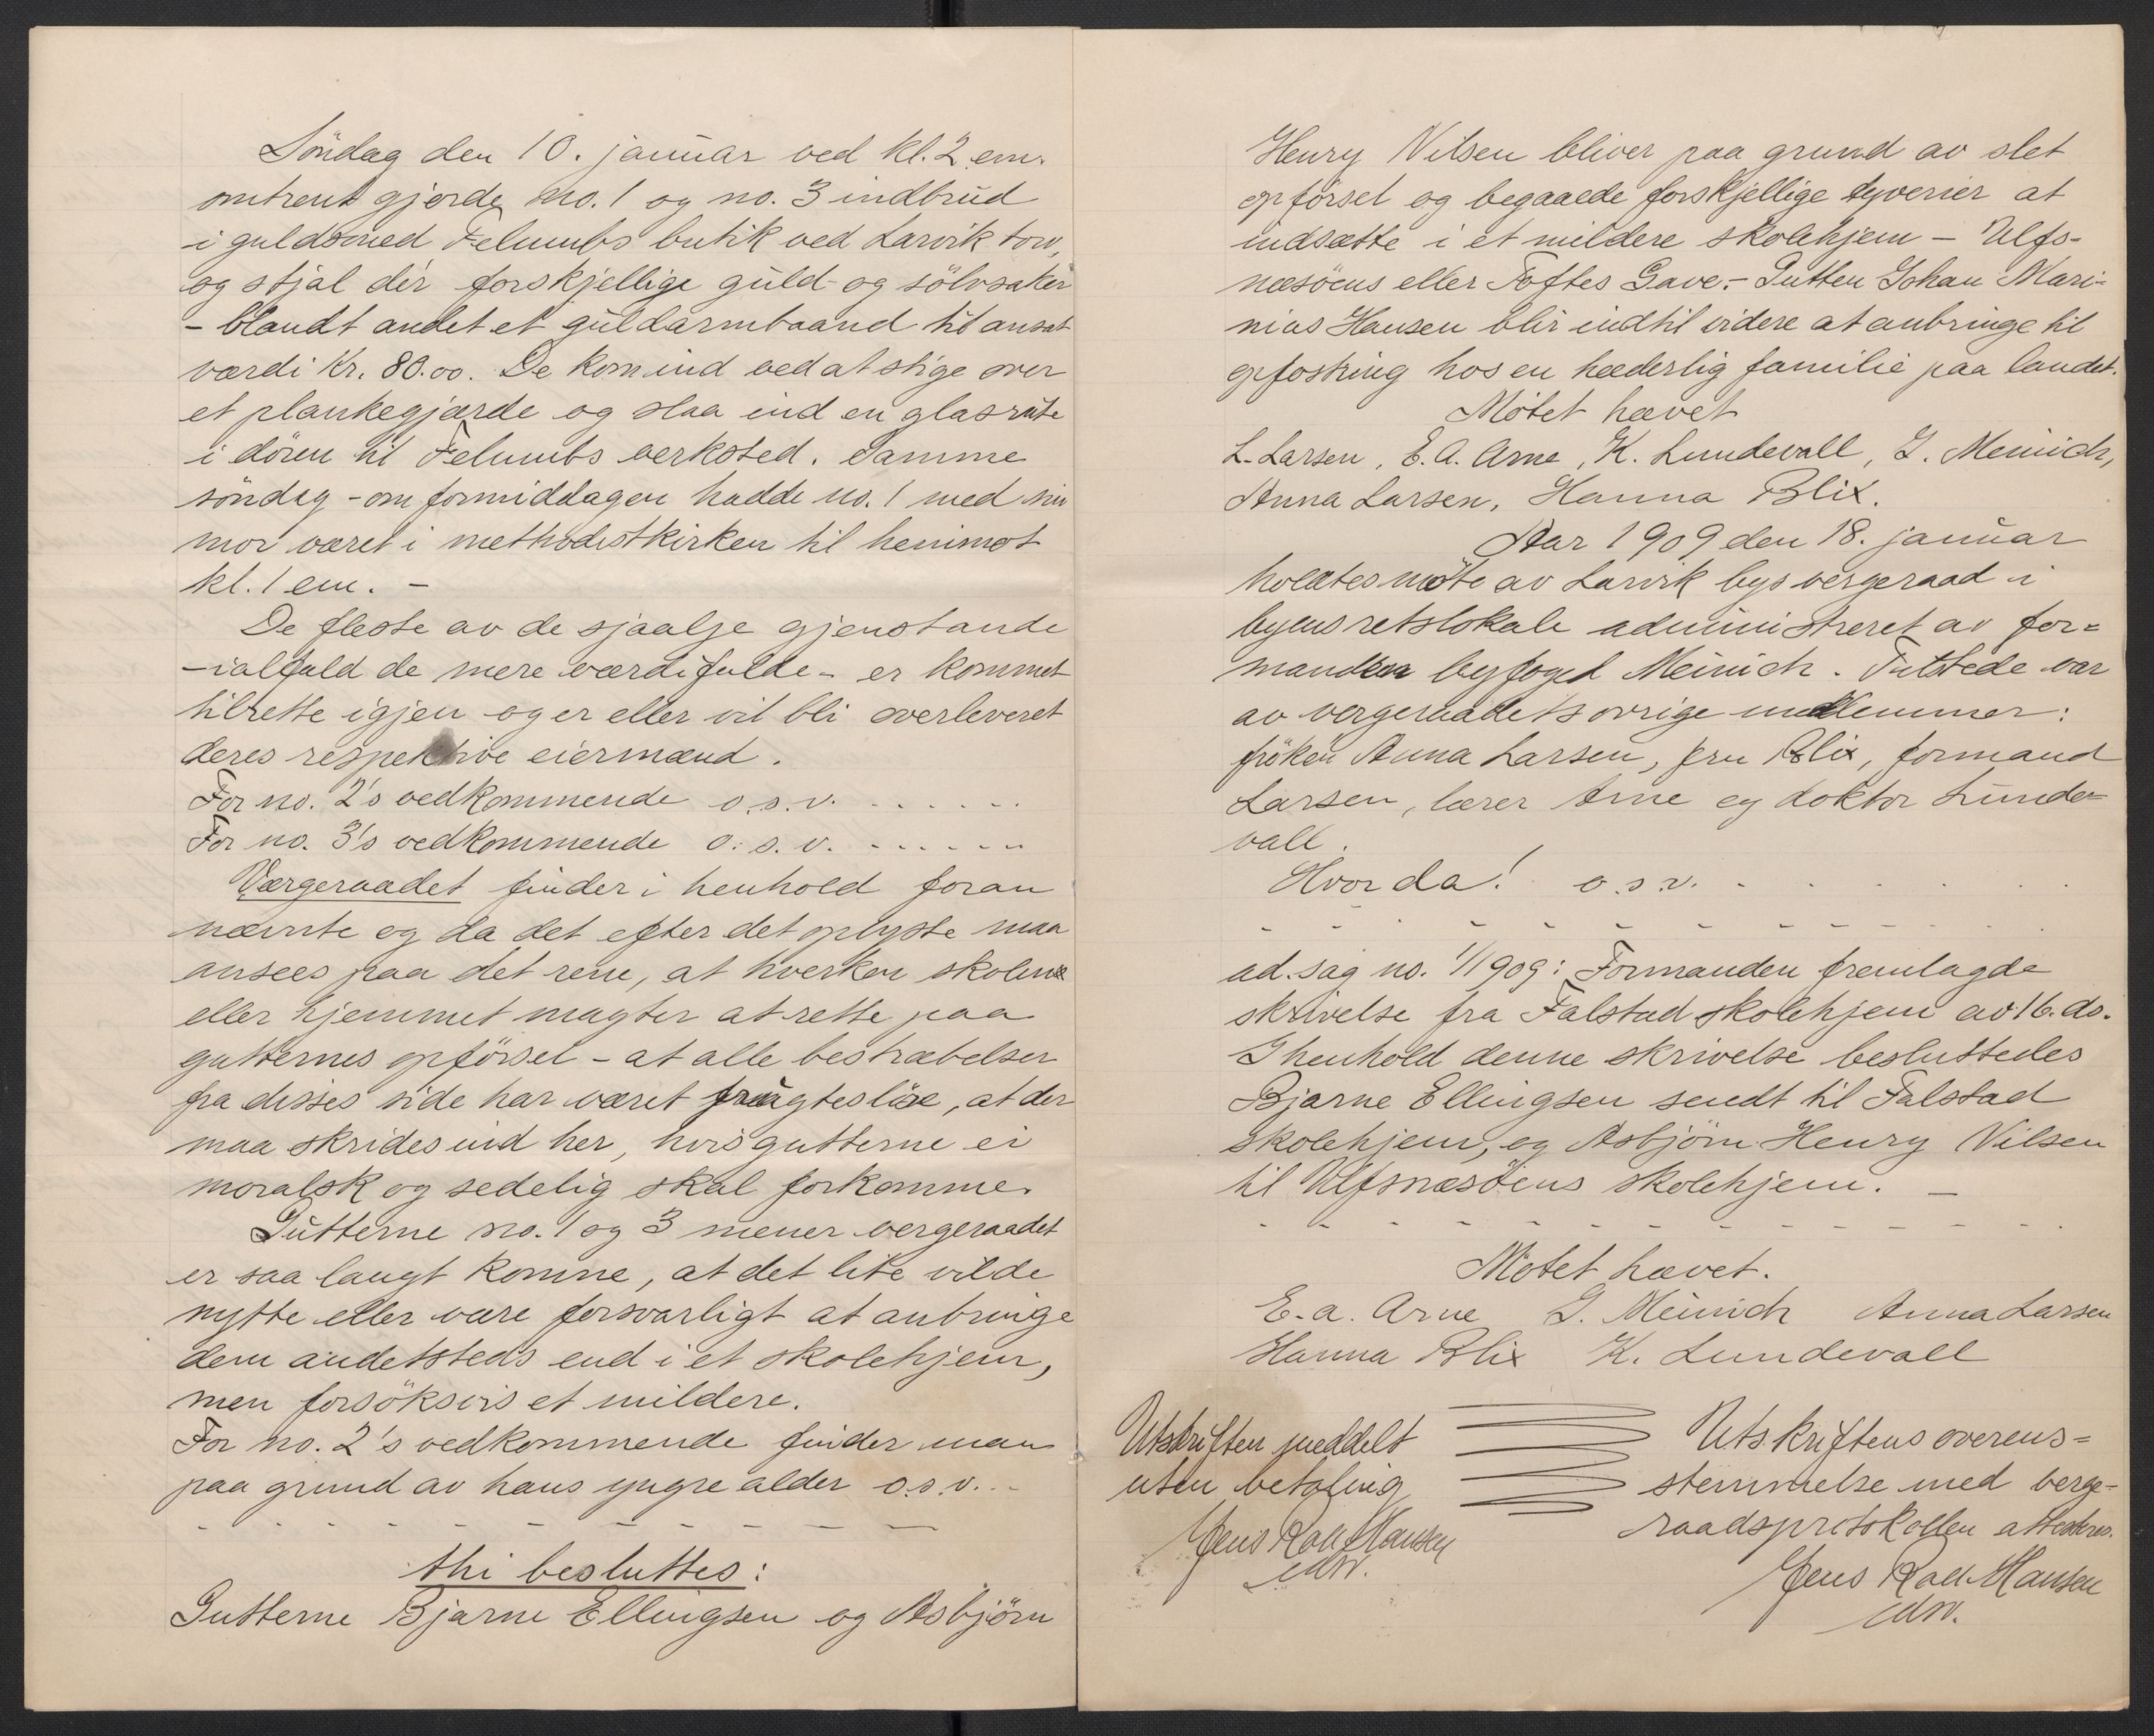 Söndag den 10. januar ved kl. 2 em.
omtrent gjorde no. 1 og no. 3 indbrud
i guldsmed Felumbs butik ved Larvik torv,
og stjal dér forskjellige guld- og sölvsaker
- blandt andet et guldarmbaand til ansat
værdi Kr. 80.00. De kom ind ved at stige over
et plankegjærde og slaa ind en glasrute
i dören til Felumbs verksted. Samme
söndag - om formiddagen hadde no. 1 med sin
mor været i methodistkirken til henimot
kl. 1 em. -
De fleste av de sjaalne gjenstande
- ialfald de mere værdifulde - er kommet
tilrette igjen og er eller vil bli overleveret
deres respektive eiermænd.
For no. 2's vedkommende o.s.v. . . . . . .
For no. 3's vedkommende o.s.v. - - - - - -
Værgeraadet finder i henhold foran
nævnte og da det efter det oplyste maa
ansees paa det rene, at hverken skolene
eller hjemmet magter at rette paa
gutternes opförsel - at alle bestræbelser
fra disses side har været frugteslöse, at der
maa skrides ind her, hvis gutterne ei
moralsk og sedelig skal forkomme.
Gutterne no. 1 og 3 mener vergeraadet
er saa langt komne, at det lite vilde
nytte eller være forsvarligt at anbringe
dem andetsteds end i et skolehjem,
men forsöksvis et mildere.
For no. 2's vedkommende finder man
paa grund av hans yngre alder o.s.v. . -
- - - - - - - - - - - -
thi besluttes:
Gutterne Bjarne Ellingsen og Asbjörn
Henry Nilsen bliver paa grund av slet
opförsel og begaaede forskjellige tyverier at
indsætte i et mildere skolehjem - Ulfs-
næsöens eller Toftes Gave. - Gutten Johan Mari-
nius Hansen blir indtil videre at anbringe til
opfostring hos en hæderlig familie paa landet.
Mötet hævet
L. Larsen, E. A. Arne, K. Lundevall, G. Meinich,
Anna Larsen, Hanna Blix.
Aar 1909 den 18. januar
holdtes möte av Larvik bys vergeraad i
byens retslokale administreret av for=
manden byfoged Meinich. Tilstede var
av vergeraadets ovrige medlemmer:
fröken Anna Larsen, fru Blix, formand
Larsen, lærer Arne og doktor Lunde=
vall.
Hvor da! o.s.v. . . . . . .
- - - - - - - - - - - - -
ad. sag no. 1/1909: Formanden fremlagde
skrivelse fra Falstad skolehjem av 16. ds.
I henhold denne skrivelse besluttedes
Bjarne Ellingsen sendt til Falstad
skolehjem, og Asbjörn Henry Nilsen
til Ulfsnæsöens skolehjem. -
- - - - - - - - - - - - -
Mötet hævet.
E. a. Arne G. Meinich Anna Larsen
Hanna Blix K. Lundevall
Utskriften meddelt
uten betaling
Jens Hansen
Utskriftens overens=
stemmelse med verge-
raadsprotokollen attesteres.
Jens Hansen